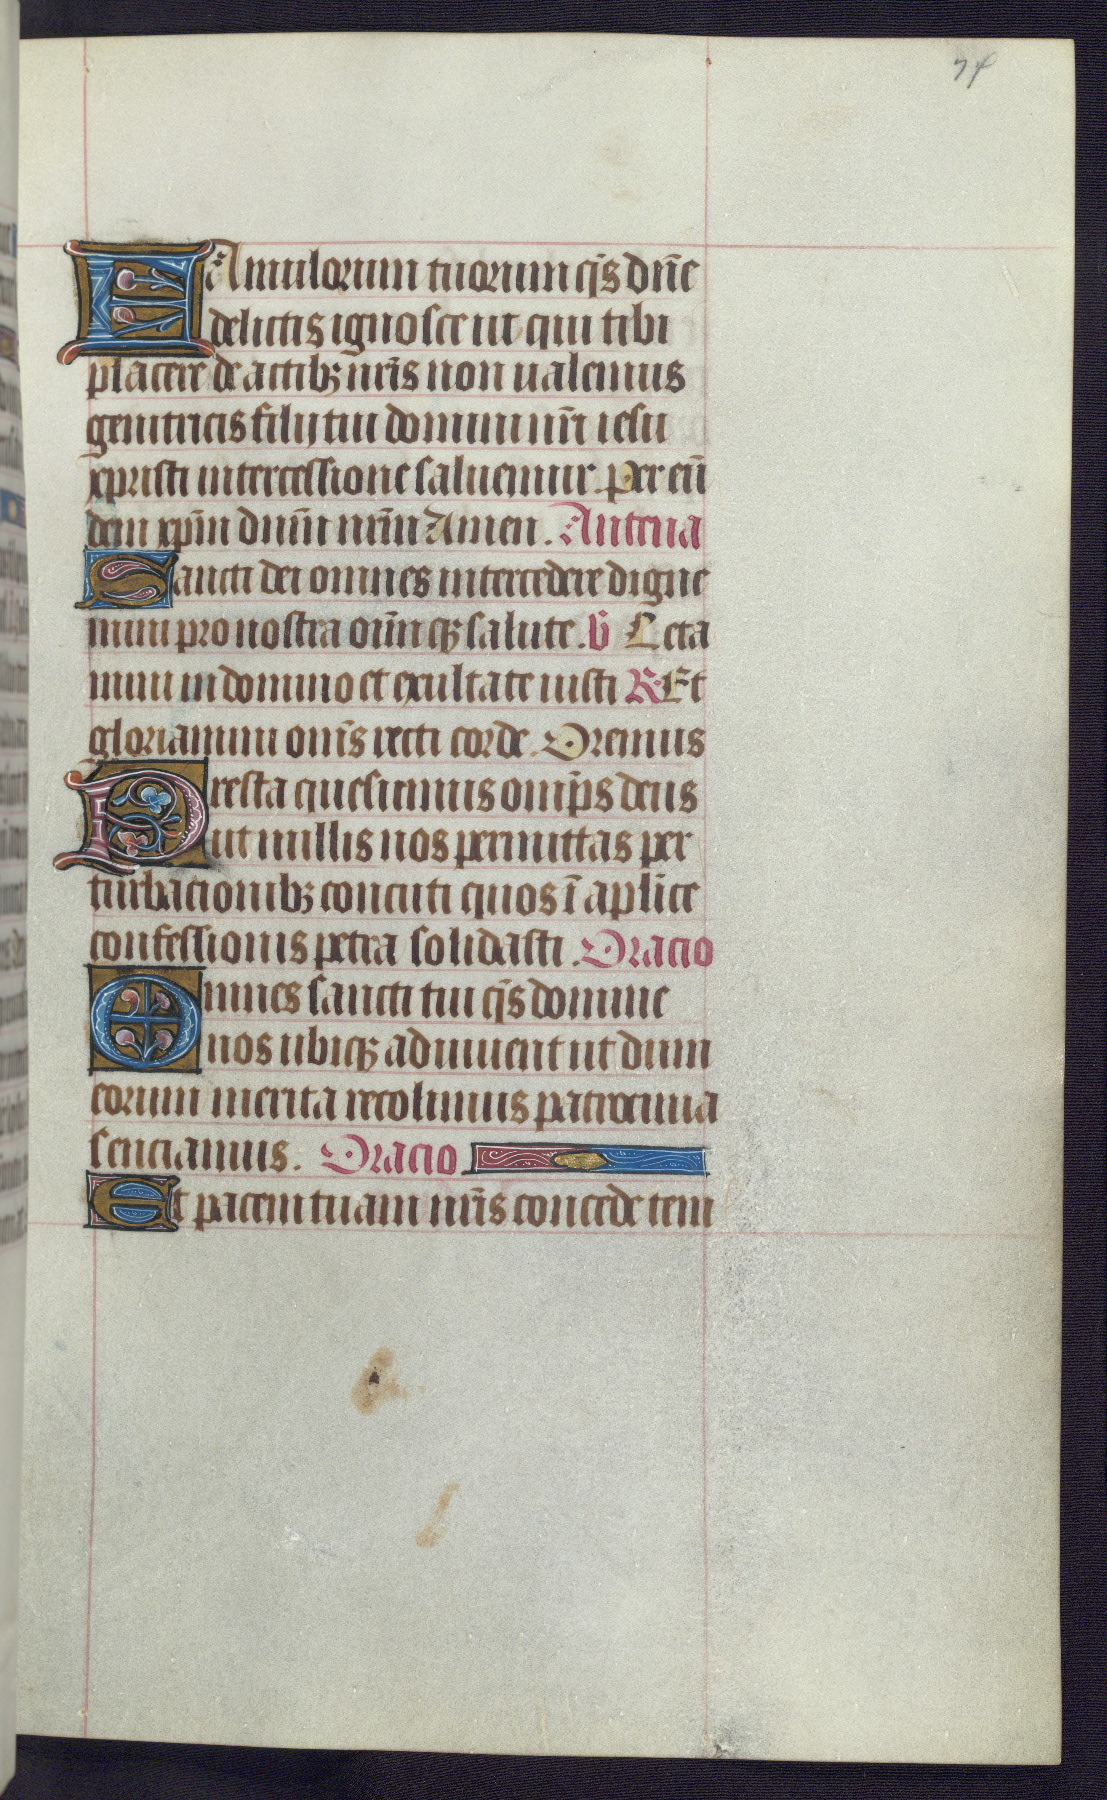 74
FAmulorum tuorum q̄s dn̄e
delictis ignosce ut qui tibi
placere de actibꝫ nr̄is non ualemus
genitricis filij tui domini nr̄i iesu
xpristi intercessione saluemur. Per eū
dem xp̄m dnm̄ nrm̄ Amen. Antena
Sancti dei omnes intercedere digne
mini pro nostra oīm̄ qꝫ salute. v̄ Leta
mini in domino et exultate iusti R Et
gloriamini om̄s recti corde. Oremus
Presta quesumus omp̄s deus
ut nullis nos permittas per
turbacionibꝫ concuti quos ī apl̄ice
confessionis petra solidasti. Oracio
Omnes sancti tui q̄s domine
nos ubiqꝫ adiuuent ut dum
eorum merita recolimus patrocinia
senciamus. Oracio
Et pacem tuam nr̄is concede tem